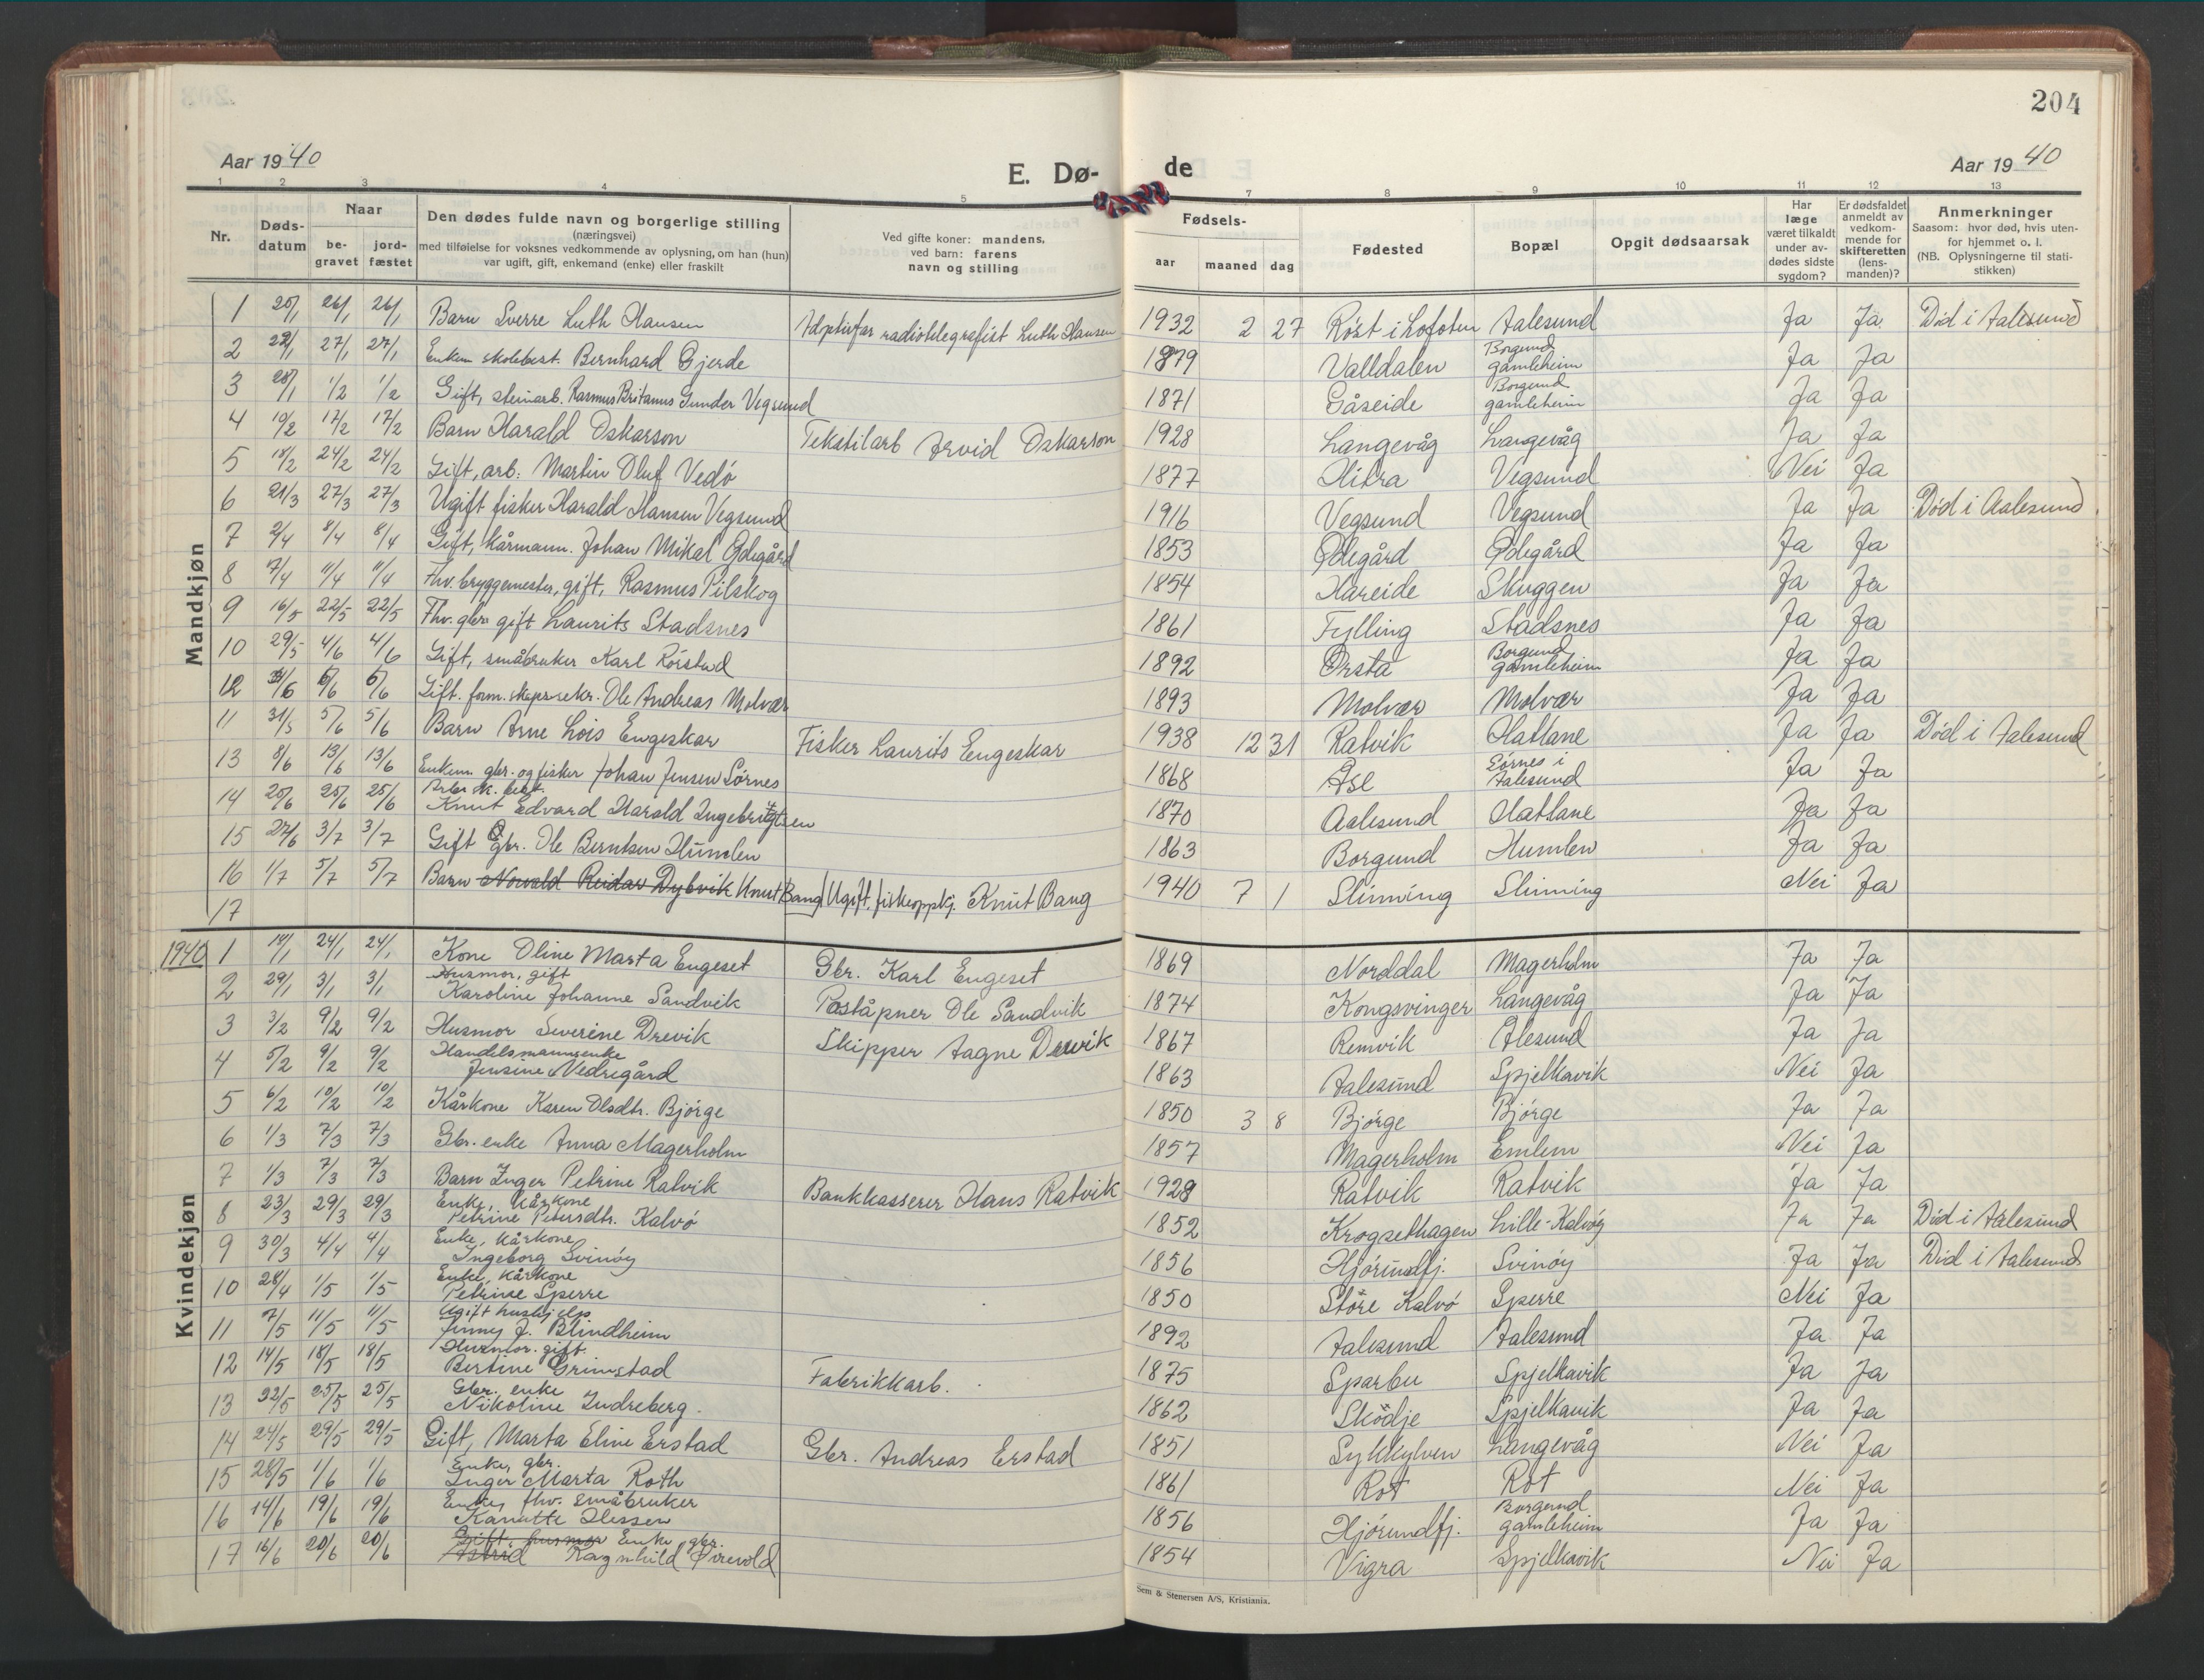 204
Aar 1940
E. Dø-
de
Aar 1940
1 2 3 4 5 7 8 9 10 11 12 13
Nr. Døds-datum Naar be-gravet jord-fæstet
Den dødes fulde navn og borgerlige stilling (næringsvei) med tilføielse for voksnes vedkommende av oplysning, om han (hun) var ugift, gift, enkemand (enke) eller fraskilt
Ved gifte koner: mandens, ved barn: farens navn og stilling
Fødsels- aar maaned dag
Fødested
Bopæl
Opgit dødsaarsak
Har læge været tilkaldt under av-dødes sidste sygdom?
Er dødsfaldet anmeldt av vedkom-mende for skifteretten (lens-manden)?
Anmerkninger Saasom: hvor død, hvis uten-for hjemmet o. l. (NB. Oplysningerne til stati-stikken)
Mandkjøn
1 20/1 26/1 26/1 Barn Sverre Luth Hansen Adptivfar radiotelegrafist Luth Hansen 1932 2 27 Røst i Lofoten Aalesund Ja Ja Død i Aalesund
2 22/1 27/1 27/1 Enkem. skolebest. Bernhard Gjerde 1879 Valldalen Borgund gamleheim Ja Ja
3 28/1 1/2 1/2 Gift, steinarb. Rasmus Britanus Gunder Vegsund 1871 Gåseide Borgund gamleheim Ja Ja
4 10/2 17/2 17/2 Barn Harald Oskarson Tekstilarb Arvid Oskarson 1928 Langevåg Langevåg Ja Ja
5 18/2 24/2 24/2 Gift, arb. Martin Oluf Vedø 1877 Hitra Vegsund Nei Ja
6 21/3 27/3 27/3 Ugift fisker Harald Hansen Vegsund 1916 Vegsund Vegsund Ja Ja Død i Aalesund.
7 2/4 8/4 8/4 Gift, kårmann. Johan Mikal Ødegård 1853 Ødegård Ødegård Ja Ja
8 7/4 11/4 11/4 Fhv. bryggemester, gift, Rasmus Pilskog 1854 Hareide Skuggen Ja Ja
9 16/5 22/5 22/5 Fhv. gbr. gift Laurits Stadsnes 1861 Fylling Stadsnes Ja Ja
10 29/5 4/6 4/6 Gift, småbruker Karl Rørstad 1892 Ørsta Borgund gamleheim Ja Ja
12 /6 6/6 6/6 Gift. form.skaps-sekr. Ole Andreas Molvær 1893 Molvær Molvær Ja Ja
11 31/5 5/6 5/6 Barn Arne Lois Engeskar Fisker Laurits Engeskar 1938 12 31 Ratvik Hatlane Ja Ja Død i Aalesund
13 8/6 13/6 13/6 Enkem. gbr. og fisker Johan Jensen Sørnes 1868 Øse Sørnes i Aalesund Ja Ja
14 20/6 25/6 25/6 Knut Edvard Harald Ingebrigtsen 1870 Aalesund Hatlane Ja Ja
15 27/6 3/7 3/7 Gift Gbr. Ole Berntsen Humlen 1863 Borgund Humlen Ja Ja
16 1/7 5/7 5/7 Barn Norvald Reidar Dybvik Knut Bang Ugift. fiskeoppkj. Knut Bang 1940 7 1 Slinning Slinning Nei Ja
17
Kvindekjøn
1940 1 14/1 24/1 24/1 Kone Oline Marta Engeset Gbr. Karl Engeset 1869 Norddal Magerholm Ja Ja
2 29/1 3/1 3/1 Husmor, gift Karoline Johanne Sandvik Poståpner Ole Sandvik 1874 Kongsvinger Langevåg Ja Ja
3 3/2 9/2 9/2 Husmor Severine Drevik Skipper Aagne Drevik 1867 Remvik Ålesund Ja Ja
4 5/2 9/2 9/2 Handelsmannsenke Jensine Nedregård 1863 Aalesund Spjelkavik Nei Ja
5 6/2 10/2 10/2 Kårkone Karen Olsdtr. Bjørge 1850 3 8 Bjørge Bjørge Ja Ja
6 1/3 7/3 7/3 Gbr. enke Anna Magerholm 1857 Magerholm Emlem Nei Ja
7 1/3 7/3 7/3 Barn Inger Petrine Ratvik Bankkasserer Hans Ratvik 1928 Ratvik Ratvik Ja Ja
8 23/3 29/3 29/3 Enke, kårkone Petrine Petersdtr. Kalvø 1852 Krogsethagen Lille-Kalvøy Ja Ja Død i Aalesund
9 30/3 4/4 4/4 Enke, kårkone Ingeborg Svinøy 1856 Hjørundfj. Svinøy Ja Ja Død i Aalesund
10 28/4 1/5 1/5 Enke, kårkone Petrine Sperre 1850 Store Kalvø Sperre Nei Ja
11 7/5 11/5 11/5 Ugift hushjelp Jenny J. Blindheim 1892 Aalesund Aalesund Ja Ja
12 14/5 18/5 18/5 Husmor. gift. Bertine Grimstad Fabrikkarb. 1875 Sparbu Spjelkavik Ja Ja
13 22/5 25/5 25/5 Gbr. enke Nikoline Indreberg. 1862 Skodje Spjelkavik Ja Ja
14 24/5 29/5 29/5 Gift, Marta Eline Erstad Gbr. Andreas Erstad 1851 Sykkylven Langevåg Nei Ja
15 28/5 1/6 1/6 Enke, gbr. Inger Marta Roth 1861 Rot Rot Nei Ja
16 14/6 19/6 19/6 Enke, fhv. småbruker Kanutte Hessen 1856 Hjørundfj. Borgund gamleheim Ja Ja
17 16/6 20/6 20/6 Gift, husmor Enke, gbr. Astrid Ragnhild Ørevold 1854 Vigra Spjelkavik Nei Ja
Sem & Stenersen A/S, Kristiania.